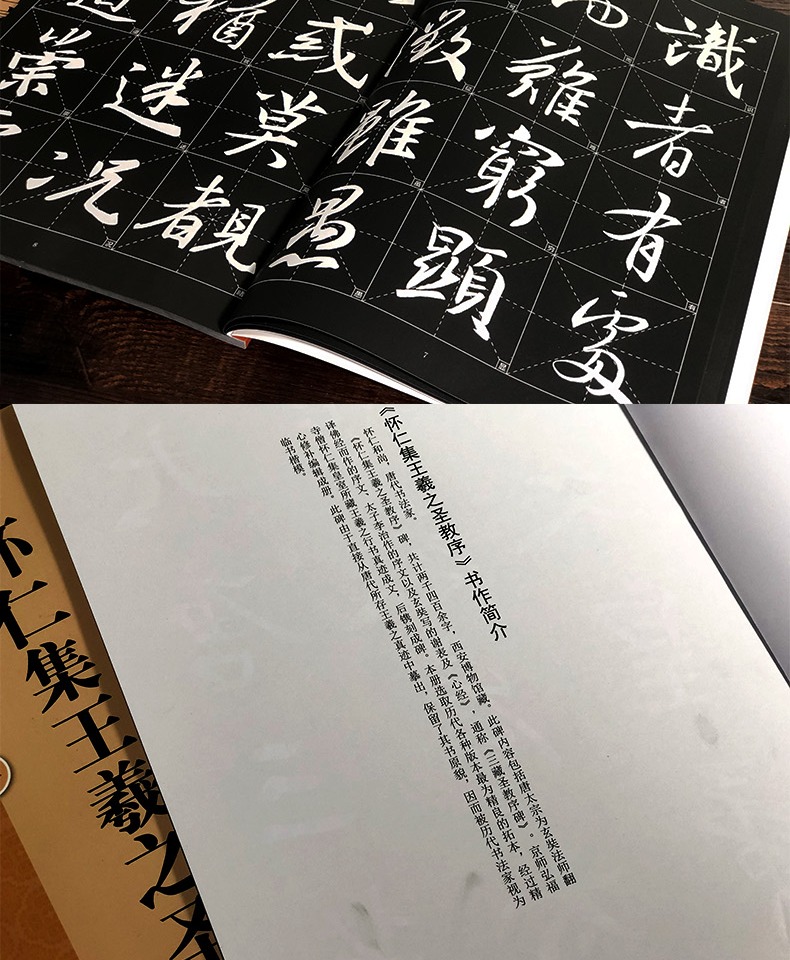 識者有處
難窮顯
徵雖愚
惑莫覩
猶迷況
崇
7
8
《怀仁集王羲之圣教序》书作简介
怀仁和尚，唐代书法家。
《怀仁集王羲之圣教序》碑，共计两千四百余字，西安博物馆藏。此碑内容包括唐太宗为玄奘法师翻
译佛经而作的序文、太子李治作的序文以及玄奘写的谢表及《心经》，通称《三藏圣教序碑》。京师弘福
寺僧怀仁集皇室所藏王羲之行书真迹成文，后镌刻成碑。本册选取历代各种版本最为精良的拓本，经过精
心修补编辑成册。此碑由于直接从唐代所存王羲之真迹中摹出，保留了其书原貌，因而被历代书法家视为
临书楷模。
怀仁集王羲之圣